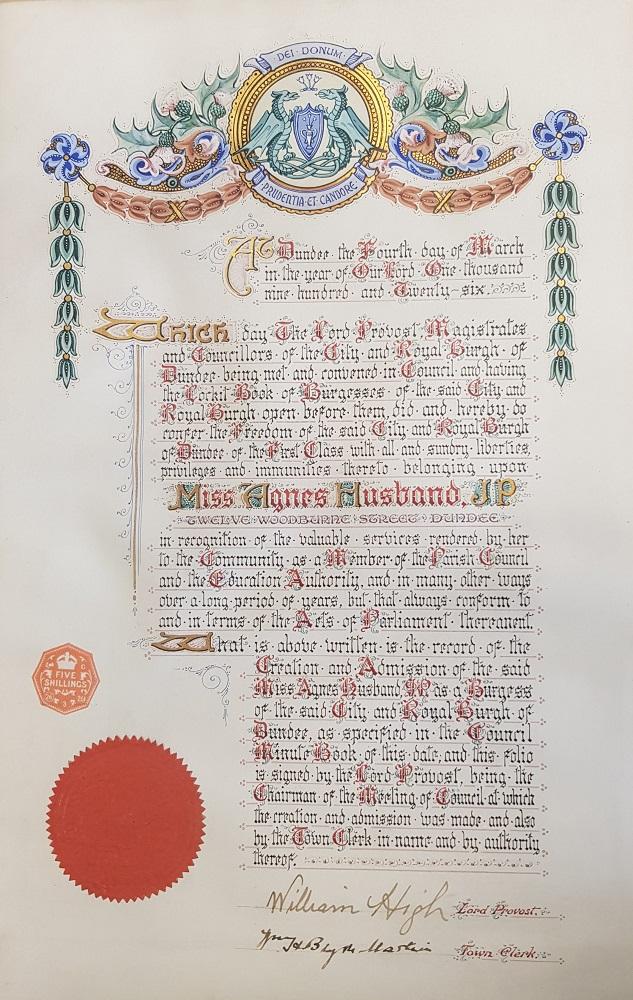 DEI · DONUM
PRUDENTIA · ET · CANDORE
At Dundee the Fourth day of March
in the year of Our Lord One thousand
nine hundred and Twenty-six.
Which day The Lord Provost, Magistrates
and Councillors of the City and Royal Burgh of
Dundee being met and convened in Council and having
the Lockit Book of Burgesses of the said City and
Royal Burgh open before them did and hereby do
confer the Freedom of the said City and Royal Burgh
of Dundee of the First Class with all and sundry liberties,
privileges and immunities thereto belonging upon
Miss Agnes Husband, JP
TWELVE WOODBURNE STREET DUNDEE
in recognition of the valuable services rendered by her
to the Community as a Member of the Parish Council
and the Education Authority, and in many other ways
over a long period of years, but that always conform to
and in terms of the Acts of Parliament thereanent.
What is above written is the record of the
Creation and Admission of the said
Miss Agnes Husband JP as a Burgess
of the said City and Royal Burgh of
Dundee, as specified in the Council
Minute Book of this date, and this folio
is signed by the Lord Provost, being the
Chairman of the Meeting of Council at which
the creation and admission was made and also
by the Town Clerk in name and by authority
thereof.
FIVE
SHILLINGS
William High Lord Provost.
Wm H Blyth Martin Town Clerk.